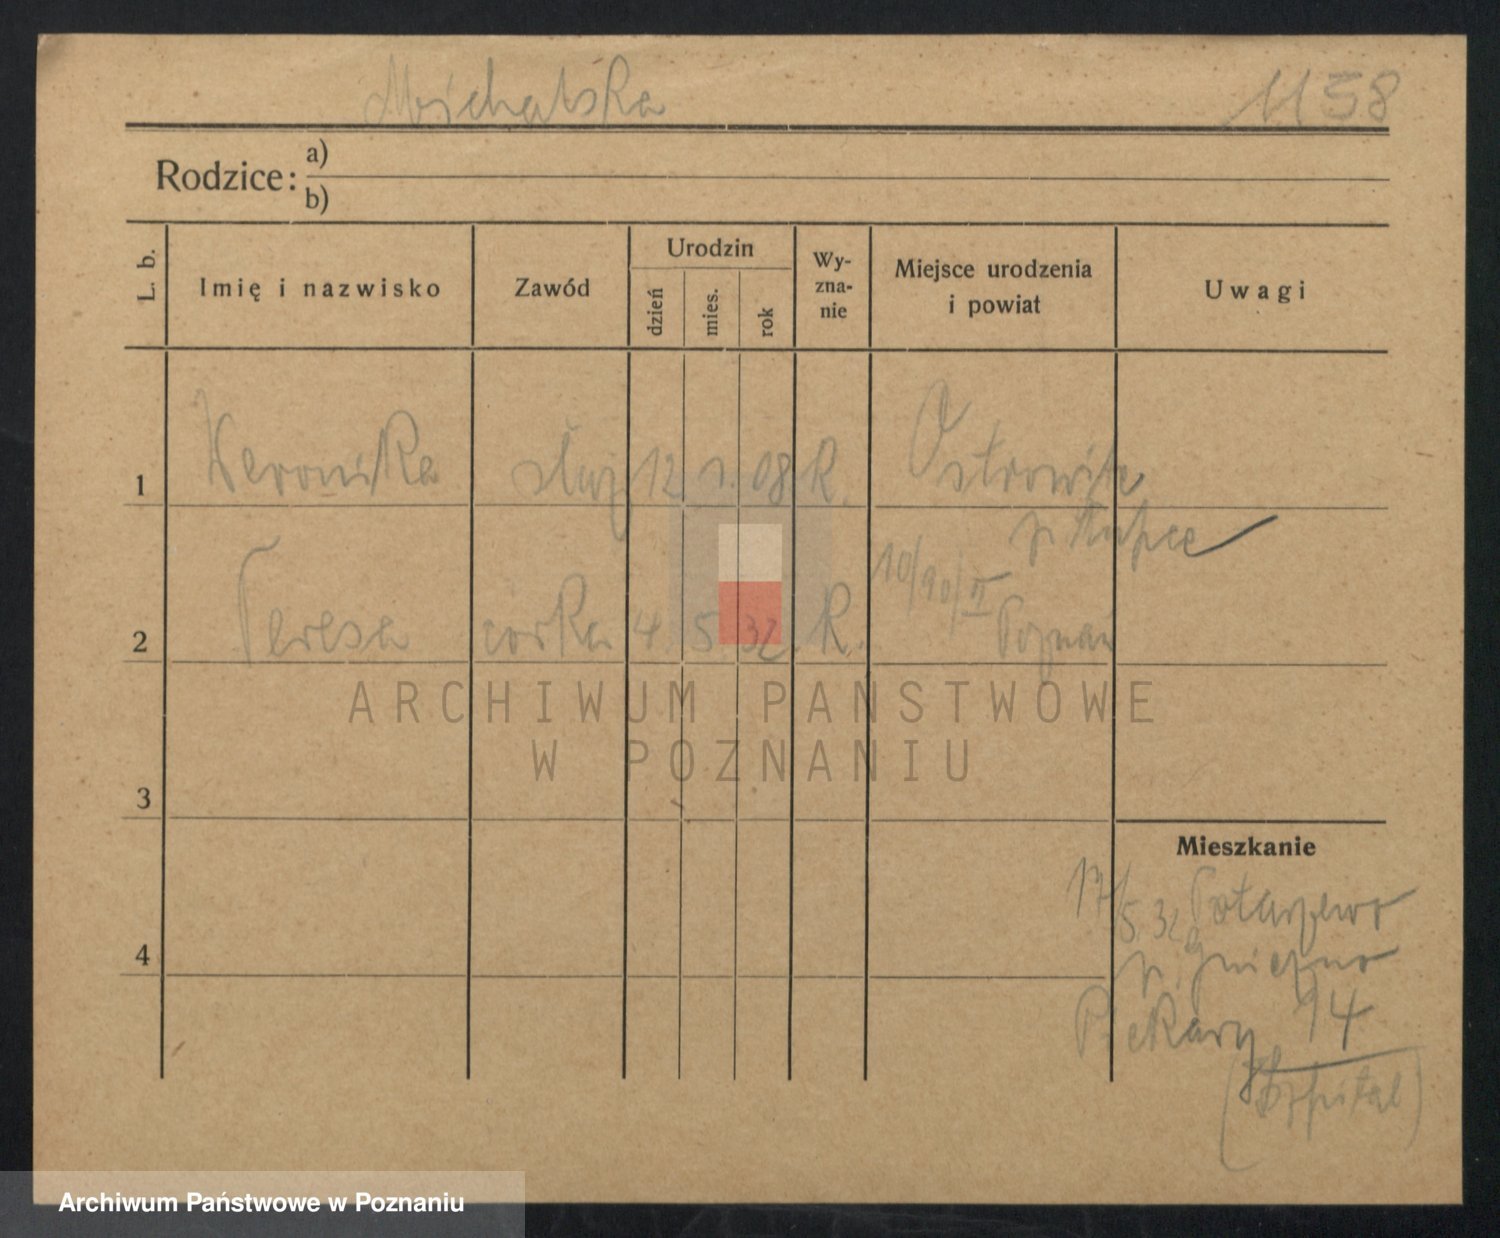 Michalska 1158
Rodzice: a)
b)
L. b. Imię i nazwisko Zawód Urodzin Wy-zna-nie Miejsce urodzenia i powiat Uwagi
dzień mies. rok
1 Weronika służ 12. 1. 08 R. Ostrowite
p Słupce
10/90/II
2 Teresa corka 4. 5. 32 R. Poznań
ARCHIWUM PAŃSTWOWE
W POZNANIU
3
Mieszkanie
17/5. 32 Potarzewo
4 p. Gniezno
Piekary 14
(Szpital)
Archiwum Państwowe w Poznaniu